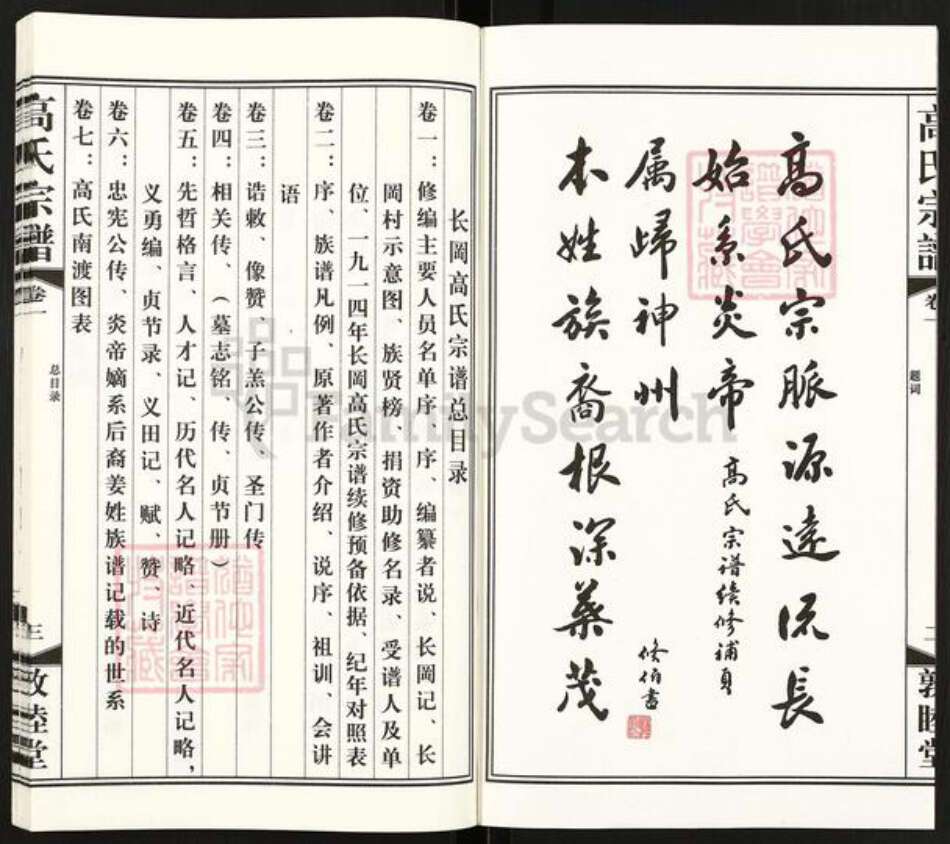 高氏宗譜
卷一
題词
二
敦睦堂
高氏宗脈源远流长
始系炎帝
属歸神州
本姓族裔根深葉茂
高氏宗谱续修補頁
修伯書
长岡高氏宗谱总目录
卷一：修编主要人员名单序、序、编纂者说、长岡记、长
岡村示意图、族贤榜、捐资助修名录、受谱人及单
位、一九一四年长岡高氏宗谱续修预备依据、纪年对照表
卷二：序、族谱凡例、原著作者介绍、说序、祖训、会讲
语
卷三：诰敕、像赞、子羔公传、圣门传
卷四：相关传、（墓志铭、传、贞节册）
卷五：先哲格言、人才记、历代名人记略、近代名人记略，
义勇编、贞节录、义田记、赋、赞、诗
卷六：忠宪公传、炎帝嫡系后裔姜姓族谱记载的世系
卷七：高氏南渡图表
高氏宗譜
卷一
总目录
三
敦睦堂
FamilySearch